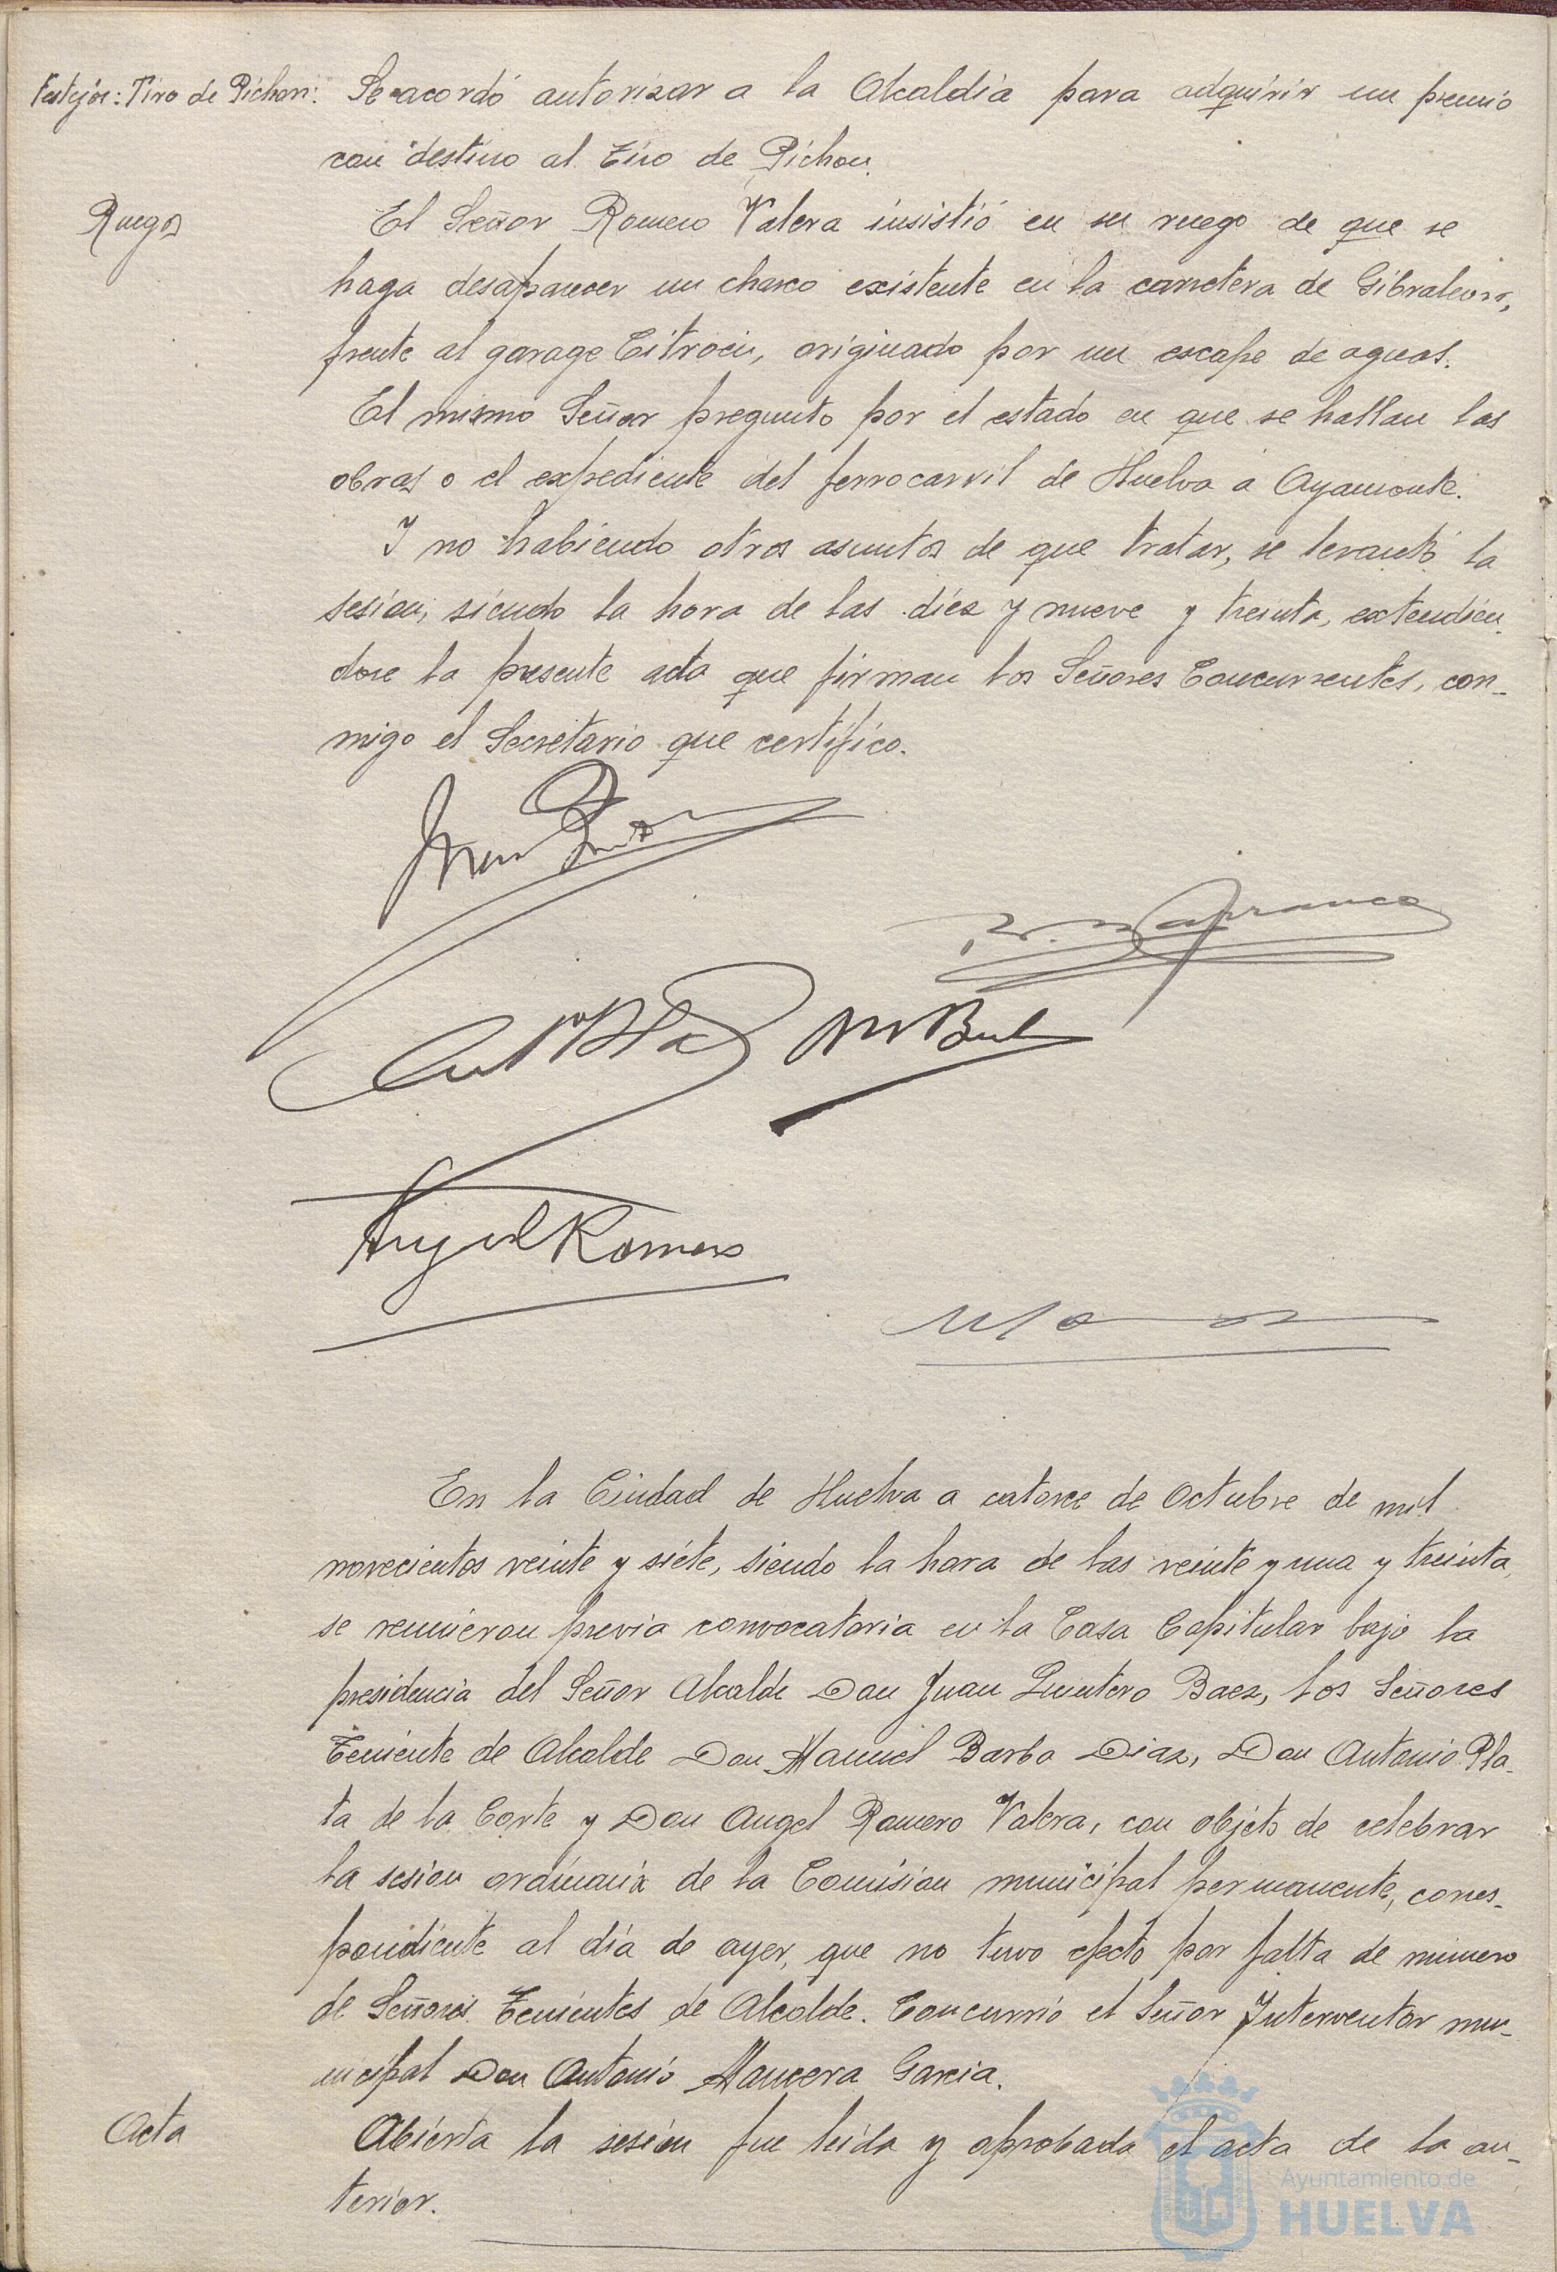 Festejos: Tiro de Pichon: Se acordó autorizar a la Alcaldia para adquirir un premio
con destino al Tiro de Pichon.
Ruegos El Señor Romero Valera insistió en su ruego de que se
haga desaparecer un charco existente en la carretera de Gibraleon,
frente al garage Citroen, originado por un escape de aguas.
El mismo Señor pregunto por el estado en que se hallan las
obras o el expediente del ferrocarril de Huelva a Ayamonte.
Y no habiendo otros asuntos de que tratar, se levantó la
sesion, siendo la hora de las diez y nueve y treinta, extendien-
dose la presente acta que firman los Señores Concurrentes, con-
migo el Secretario que certifico.
Angel Romero
En la Ciudad de Huelva a catorce de Octubre de mil
novecientos veinte y siete, siendo la hora de las veinte y una y treinta,
se reunieron previa convocatoria en la Casa Capitular bajo la
presidencia del Señor Alcalde Don Juan Quintero Baez, los Señores
Teniente de Alcalde Don Manuel Barba Diaz, Don Antonio Pla-
ta de la Corte y Don Angel Romero Valera, con objeto de celebrar
la sesion ordinaria de la Comision municipal permanente, corres-
pondiente al día de ayer, que no tuvo efecto por falta de número
de Señores Tenientes de Alcalde. Concurrió el Señor Interventor mu-
nicipal Don Antonio Mancera Garcia.
Acta Abierta la sesion fue leida y aprobada el acta de la an-
terior.
Ayuntamiento de
HUELVA